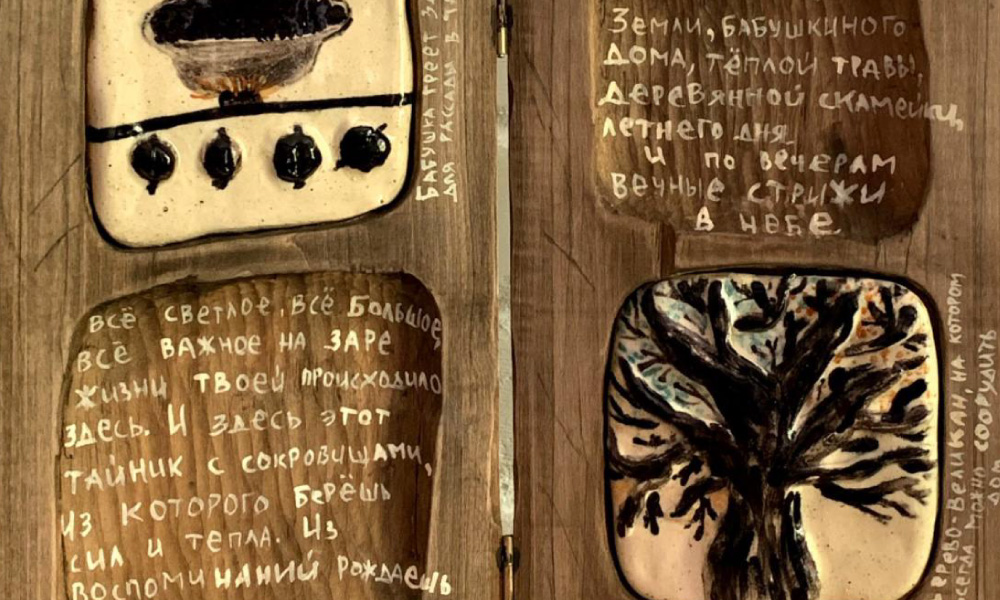 БАБУШКА ГРЕЕТ
ДЛЯ РАССАДЫ В
ВСЁ СВЕТЛОЕ, ВСЁ БОЛЬШОЕ,
ВСЁ ВАЖНОЕ НА ЗАРЕ
ЖИЗНИ ТВОЕЙ ПРОИСХОДИЛО
ЗДЕСЬ. И ЗДЕСЬ ЭТОТ
ТАЙНИК С СОКРОВИЩАМИ,
ИЗ КОТОРОГО БЕРЁШЬ
СИЛ И ТЕПЛА. ИЗ
ВОСПОМИНАНИЙ РОЖДАЕШЬ
ЗЕМЛИ, БАБУШКИНОГО
ДОМА, ТЁПЛОЙ ТРАВЫ,
ДЕРЕВЯННОЙ СКАМЕЙКИ,
ЛЕТНЕГО ДНЯ
И ПО ВЕЧЕРАМ
ВЕЧНЫЕ СТРИЖИ
В НЕБЕ.
ДЕРЕВО-ВЕЛИКАН, НА КОТОРОМ
ВСЕГДА МОЖНО СООРУДИТЬ